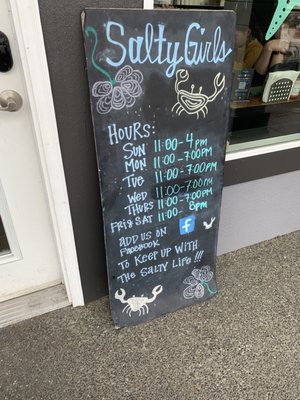 Salty Girls
HOURS:
SUN 11:00-4 PM
MON 11:00-7:00 PM
TUE 11:00-7:00 PM
WED 11:00-7:00 PM
THURS 11:00-7:00 PM
FRI & SAT 11:00-8PM
ADD US ON f
FACEBOOK
TO KEEP UP WITH
THE SALTY LIFE !!!